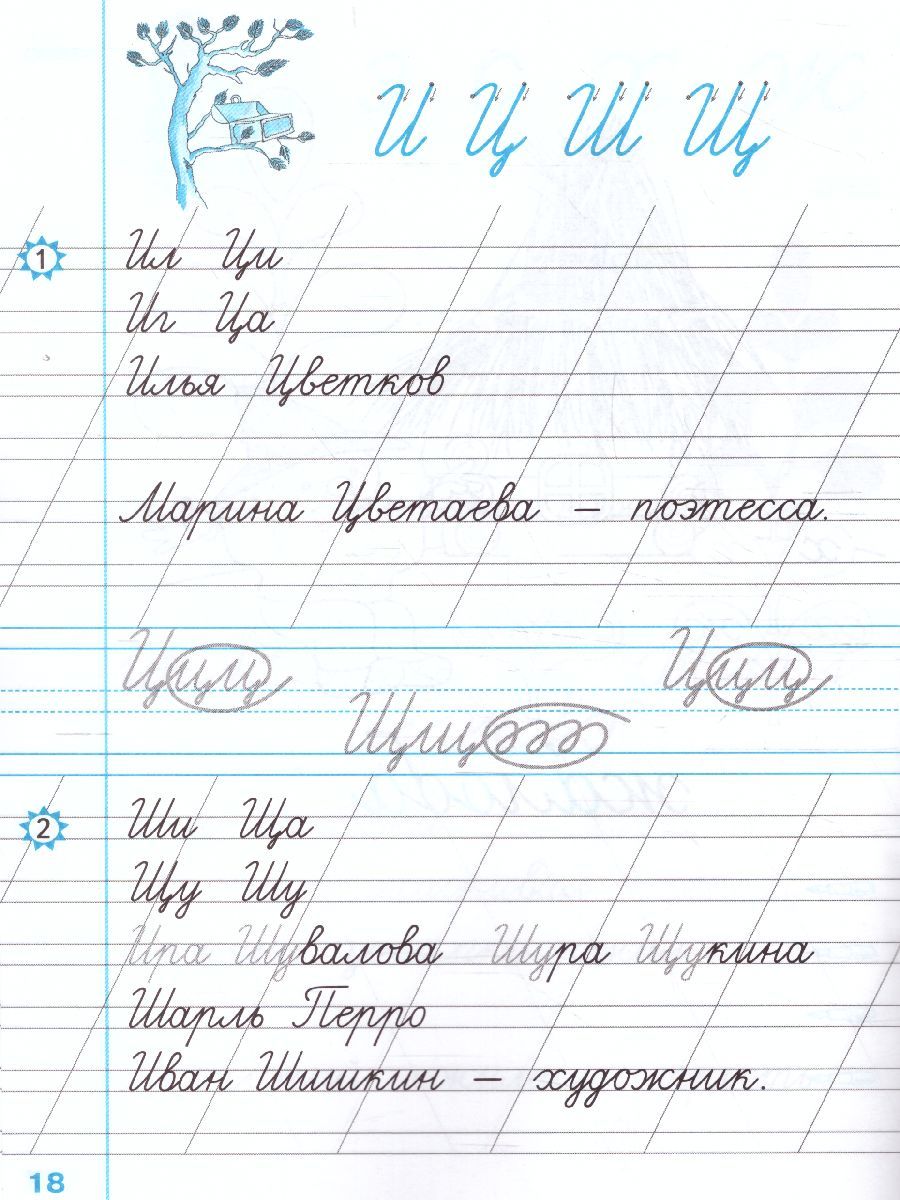 И Ц Ш Щ
1
Ил Ци
Иг Ца
Илья Цветков
Марина Цветаева — поэтесса.
Цищ Цищ
Щиц
2
Ши Ща
Щу Шу
Ира Шувалова Шура Щукина
Шарль Перро
Иван Шишкин — художник.
18